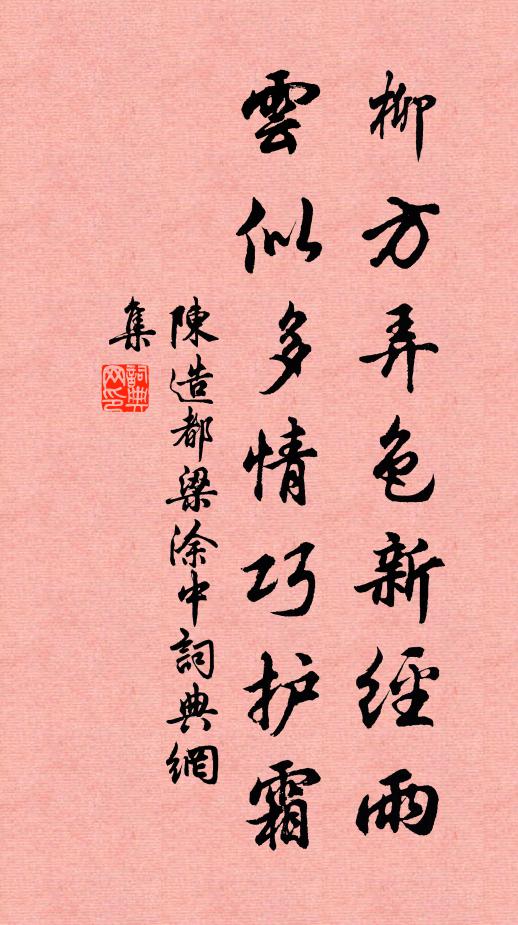 柳方弄色新經雨
雲似多情巧护霜
陳造都梁涂中詞典網
集
詞典网印